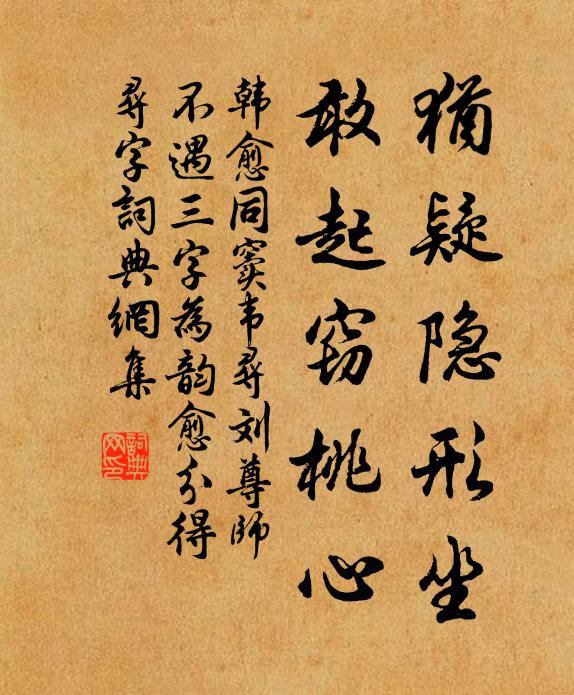 猶疑隐形坐
敢起窃桃心
韩愈同窦韦尋刘尊師
不遇三字為韵愈分得
尋字詞典網集
詞典网印